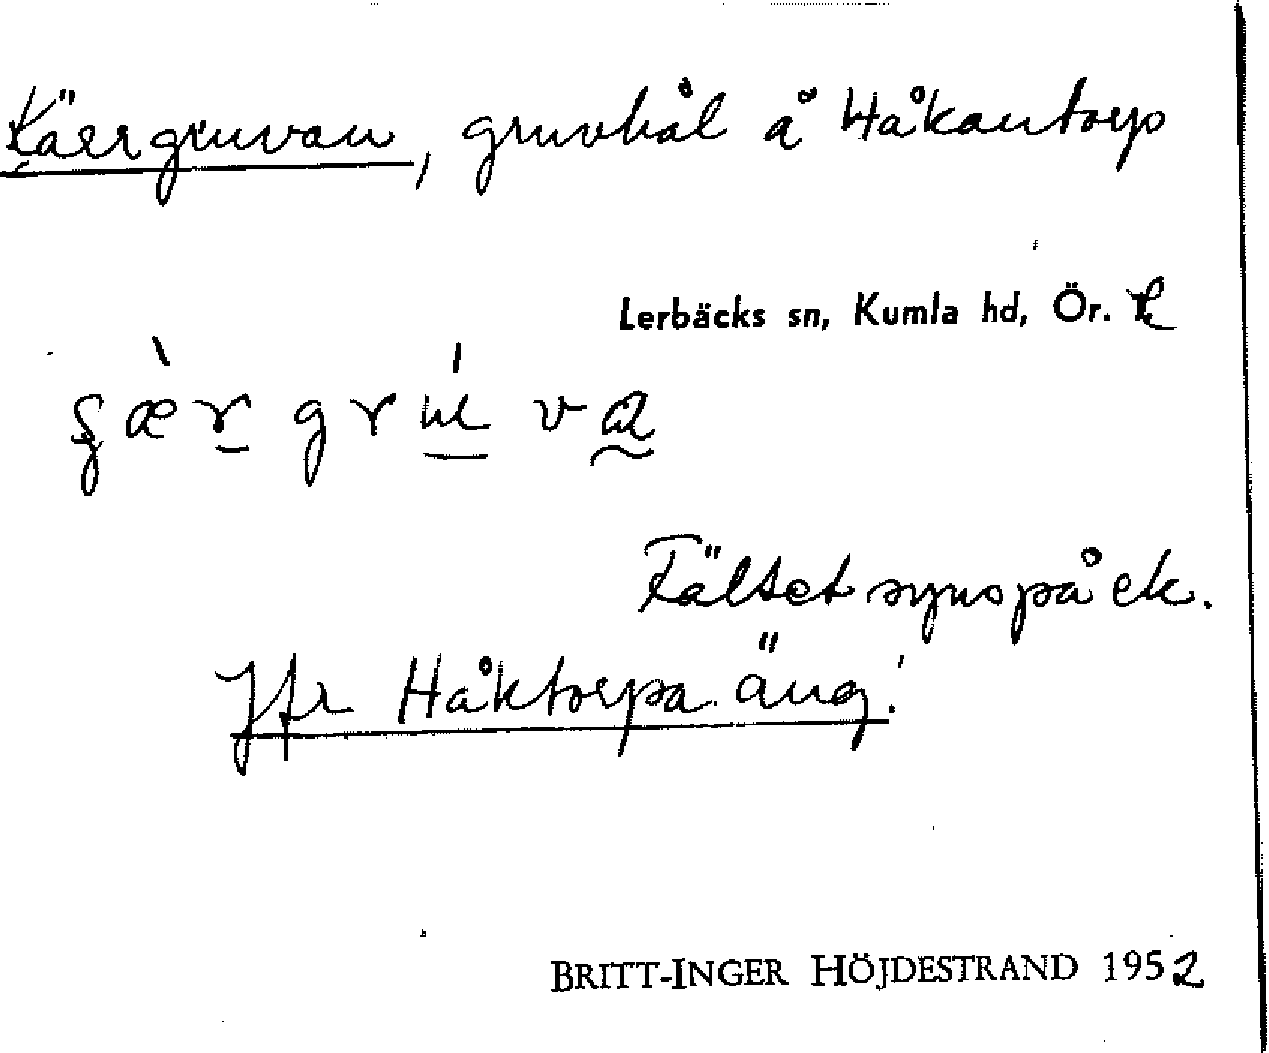 Käergruvan, gruvhål å Håkantorp
Lerbäcks sn, Kumla hd, Ör. l.
Fältet syns på ek.
Jfr Håktorpa äng.
BRITT-INGER HÖJDESTRAND 1952